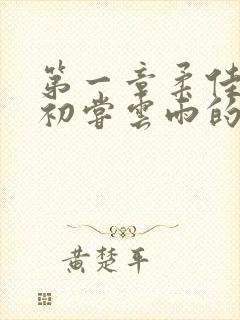 第一章柔佳
初尝雲雨的
黄楚平